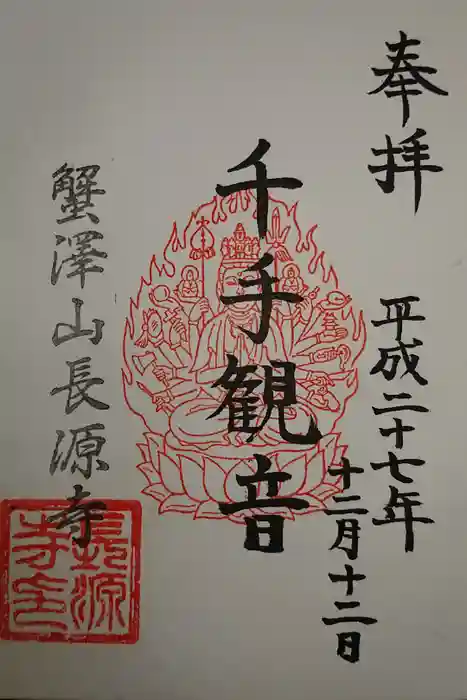 奉拝
平成二十七年
十二月十二日
千手観音
蟹澤山長源寺
長源寺